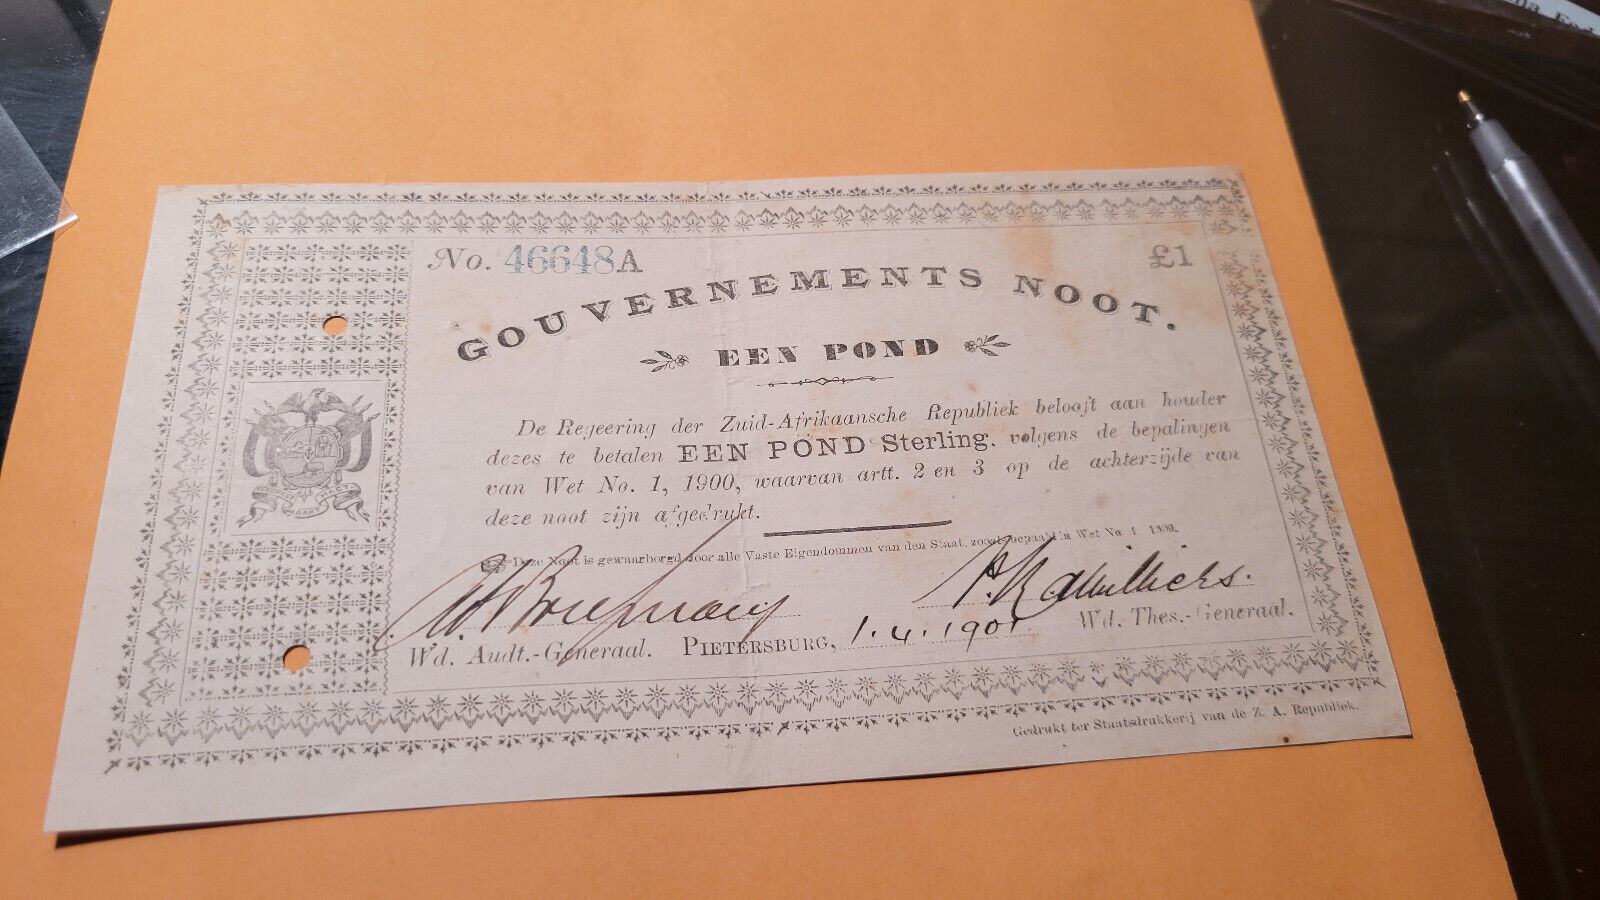 No. 46648A
£1
GOUVERNEMENTS NOOT.
EEN POND
De Regeering der Zuid-Afrikaansche Republiek belooft aan houder
dezes te betalen EEN POND Sterling. volgens de bepalingen
van Wet No. 1, 1900, waarvan artt. 2 en 3 op de achterzijde van
deze noot zijn afgedrukt.
Deze Noot is gewaarborgd door alle Vaste Eigendommen van den Staat, zooals bepaald in Wet No 1. 1900.
Wd. Audt.-Generaal. PIETERSBURG, 1.4.1901 Wd. Thes.-Generaal.
Gedrukt ter Staatsdrukkerij van de Z. A. Republiek.